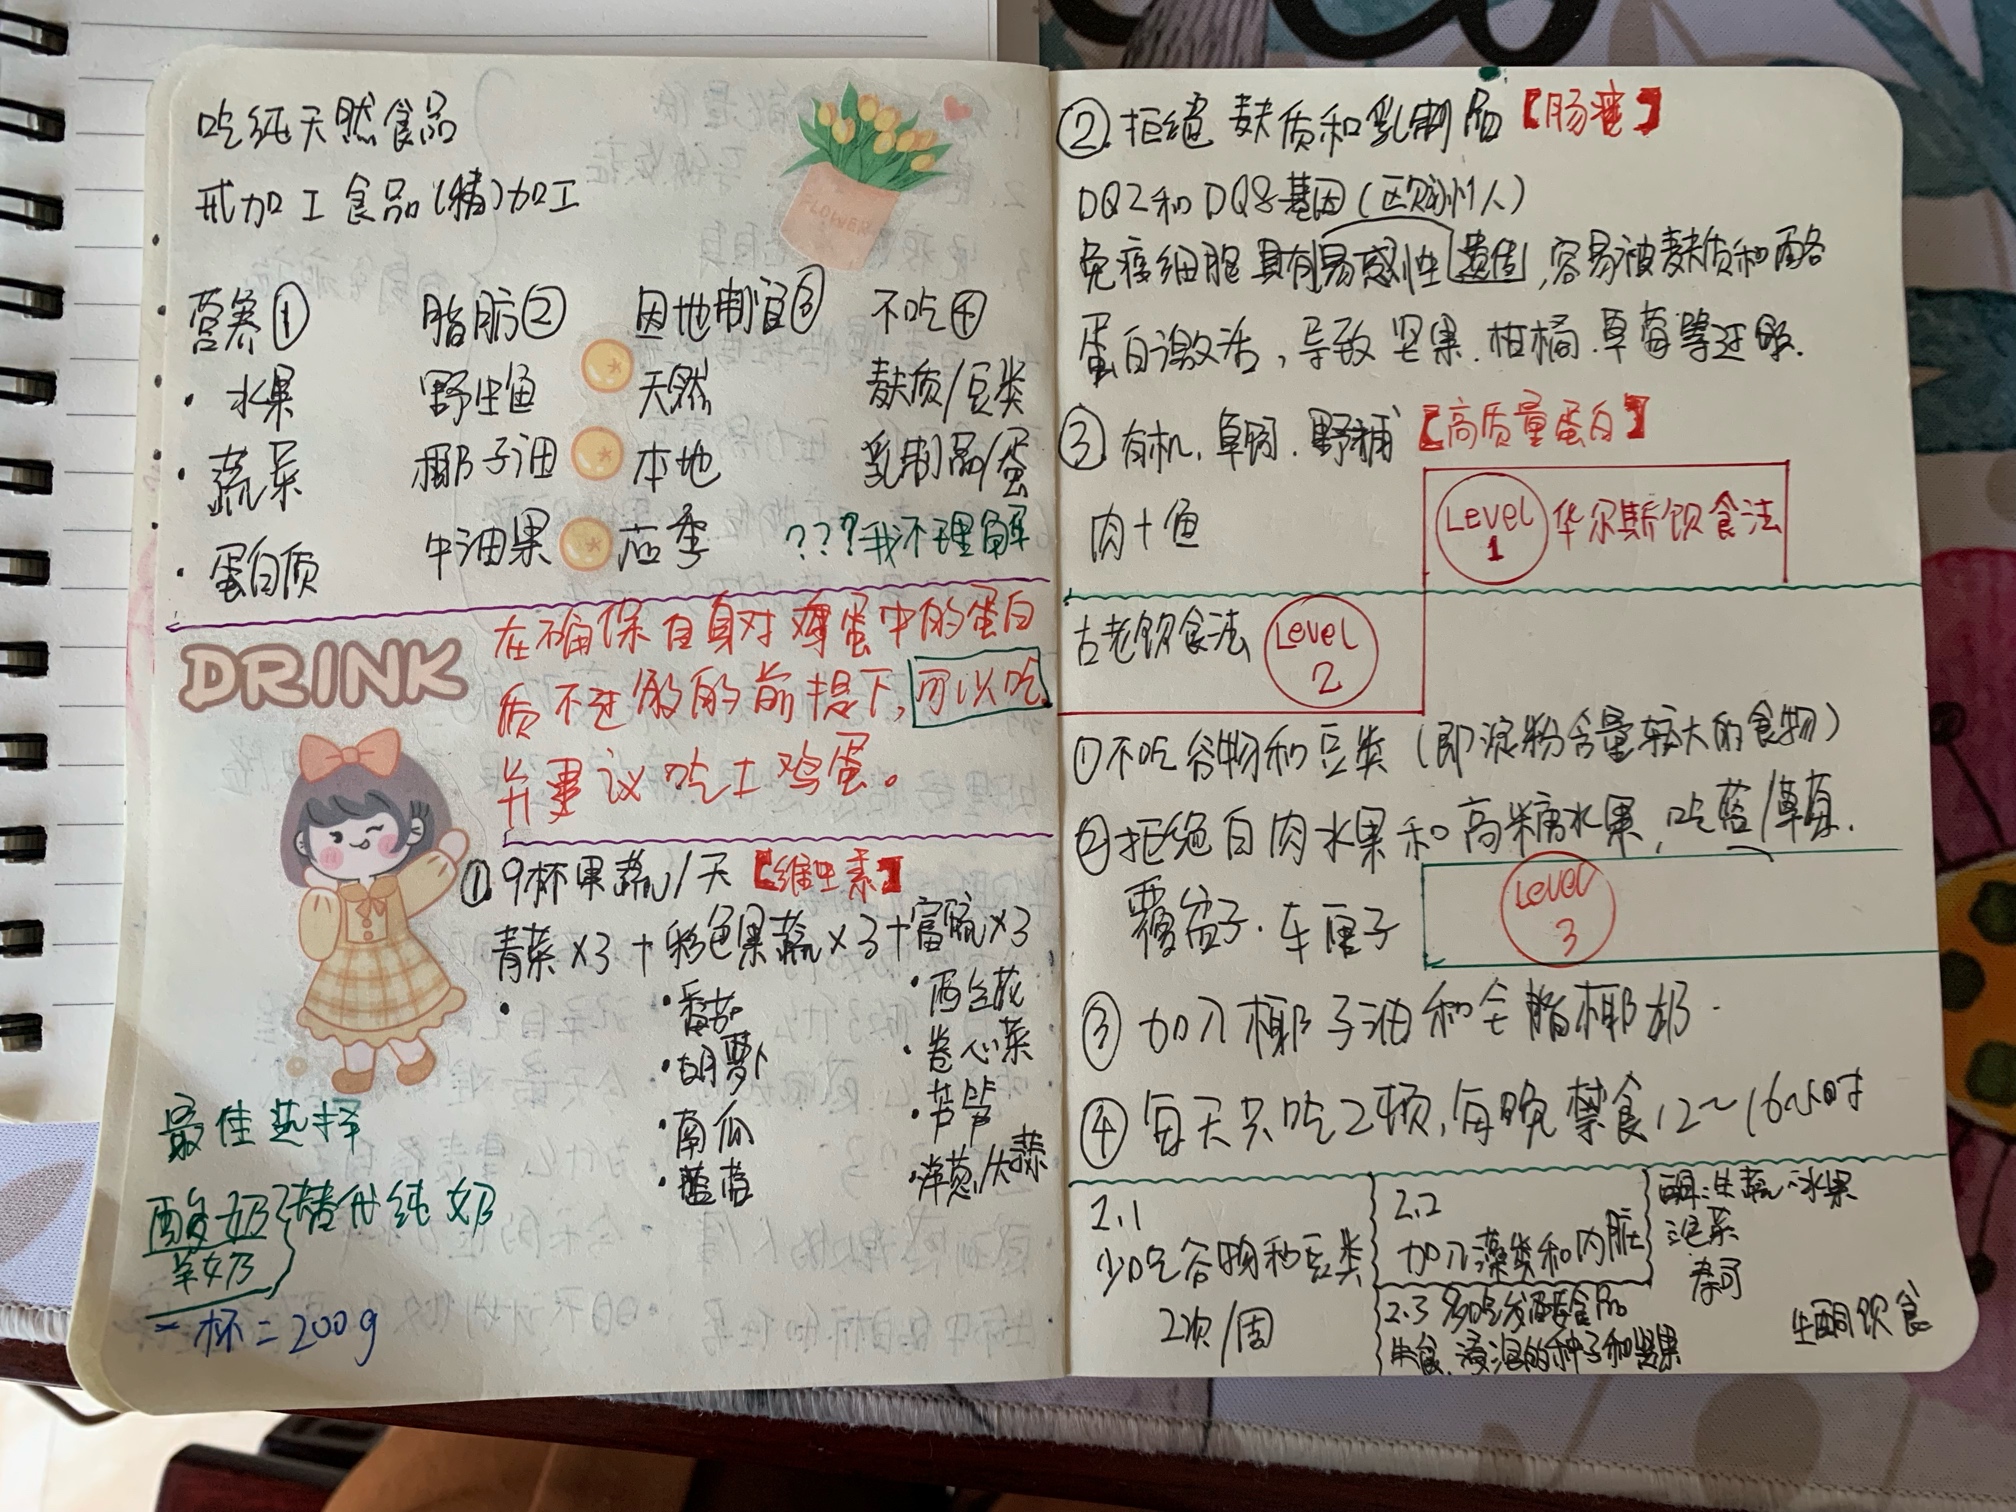 吃纯天然食品
戒加工食品(精)加工
FLOWER
营养① 脂肪② 因地制宜③ 不吃④
· 水果 野生鱼 天然 麸质/豆类
· 蔬菜 椰子油 本地 乳制品/蛋
· 蛋白质 牛油果 应季 ???我不理解
在确保自身对鸡蛋中的蛋白
质不过敏的前提下,可以吃
并建议吃土鸡蛋。
DRINK
① 9杯果蔬/天【维生素】
青菜×3+彩色果蔬×3+富硫×3
· 番茄 · 西兰花
· 胡萝卜 · 卷心菜
· 南瓜 · 芦笋
· 蓝莓 · 洋葱/大蒜
最佳选择
酸奶 替代纯奶
羊奶
一杯=200g
②.拒绝麸质和乳制品【肠壁】
DQ2和DQ8基因(欧洲人)
免疫细胞具有易感性遗传,容易被麸质和酪
蛋白激活,导致坚果.柑橘.草莓等过敏.
③有机.草饲.野捕【高质量蛋白】
肉+鱼
Level 1 华尔斯饮食法
古老饮食法 Level 2
①不吃谷物和豆类(即淀粉含量较大的食物)
②拒绝白肉水果和高糖水果,吃蓝/草莓.
覆盆子.车厘子
Level 3
③加入椰子油和全脂椰奶.
④每天只吃2顿,每晚禁食12~16小时
2.1
少吃谷物和豆类
2次/周
2.2
加入藻类和内脏
2.3 多吃发酵食品
生食.浸泡的种子和坚果
泡菜
生酮饮食